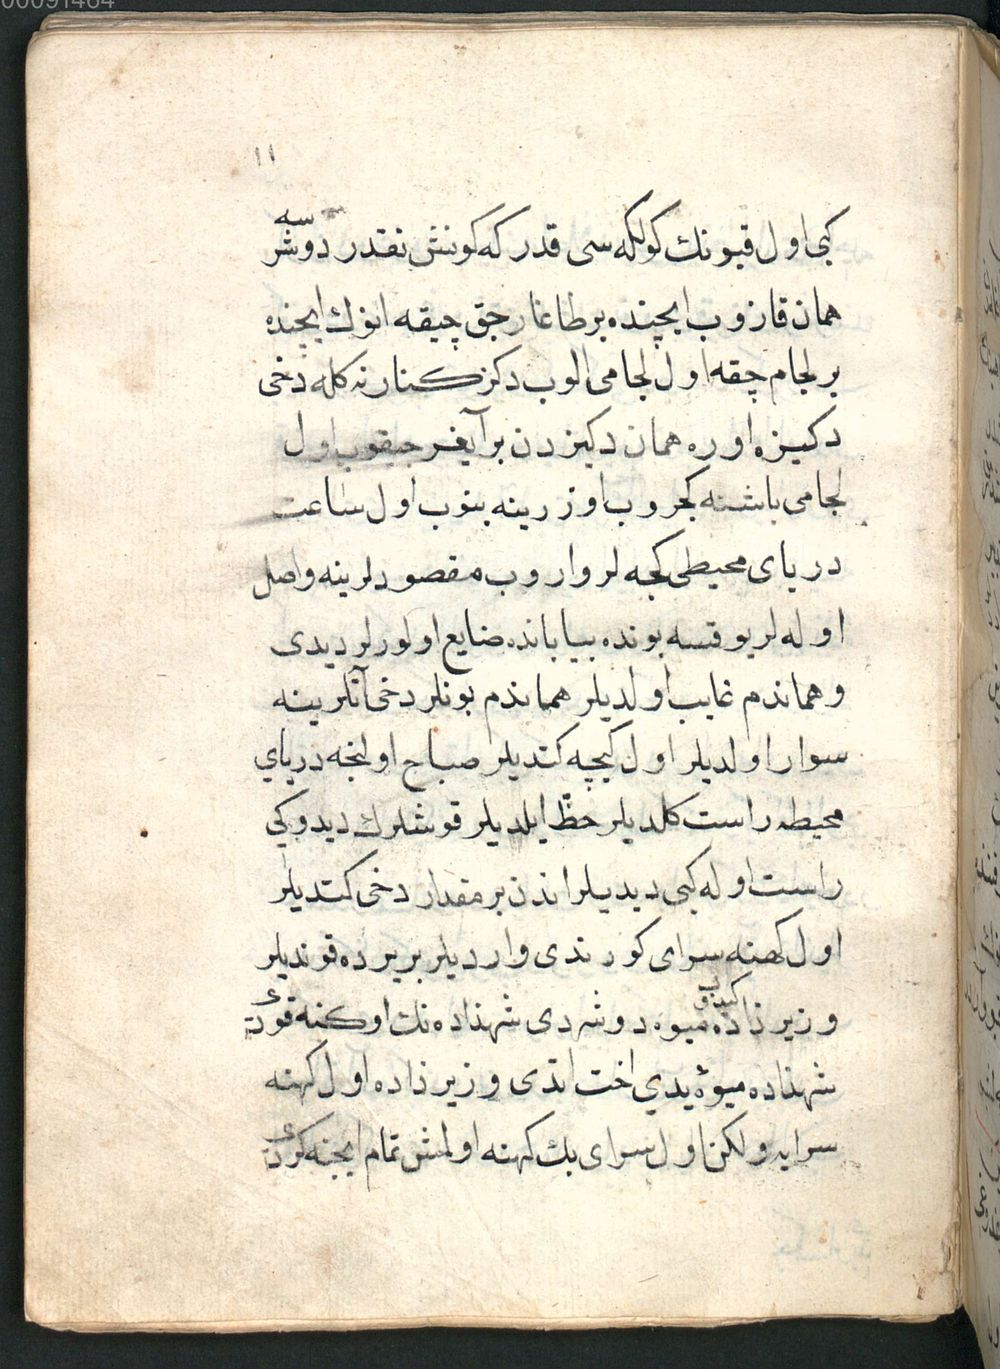 00091464
۱۱
كبی اول قپونك كولكه سی قدر كه كونش نقدر دوشرسه
همان قازوب ایچنده بر طاغارجق چیقه انوك ایچنده
بر لجام چقه اول لجامی الوب دكز كنارنه كله دخی
دكیزه اوره همان دكیزدن بر آیغر چیقوب اول
لجامی باشنه كچروب اوزرینه بنوب اول ساعت
دریای محیطی كچه لر واروب مقصودلرینه واصل
اوله لر یوقسه بونده بیابانده ضایع اولورلر دیدی
و هماندم غایب اولدیلر هماندم بونلر دخی آتلرینه
سوار اولدیلر اول كیچه كتدیلر صباح اولنجه دریای
محیطه راست كلدیلر حظّ ایلدیلر قوشلرك دیدوكی
راست اوله كبی دیدیلر اندن بر مقدار دخی كتدیلر
اول كهنه سرای كورندی واردیلر بر یرده قوندیلر
وزیرزاده كیدوب میوه دوشردی شهزاده نك اوكنه قودی
شهزاده میوهٔ یدی اخت اتدی وزیرزاده اول كهنه
سرایه ولكن اول سرای بك كهنه اولمش تمام ایچنه كردی